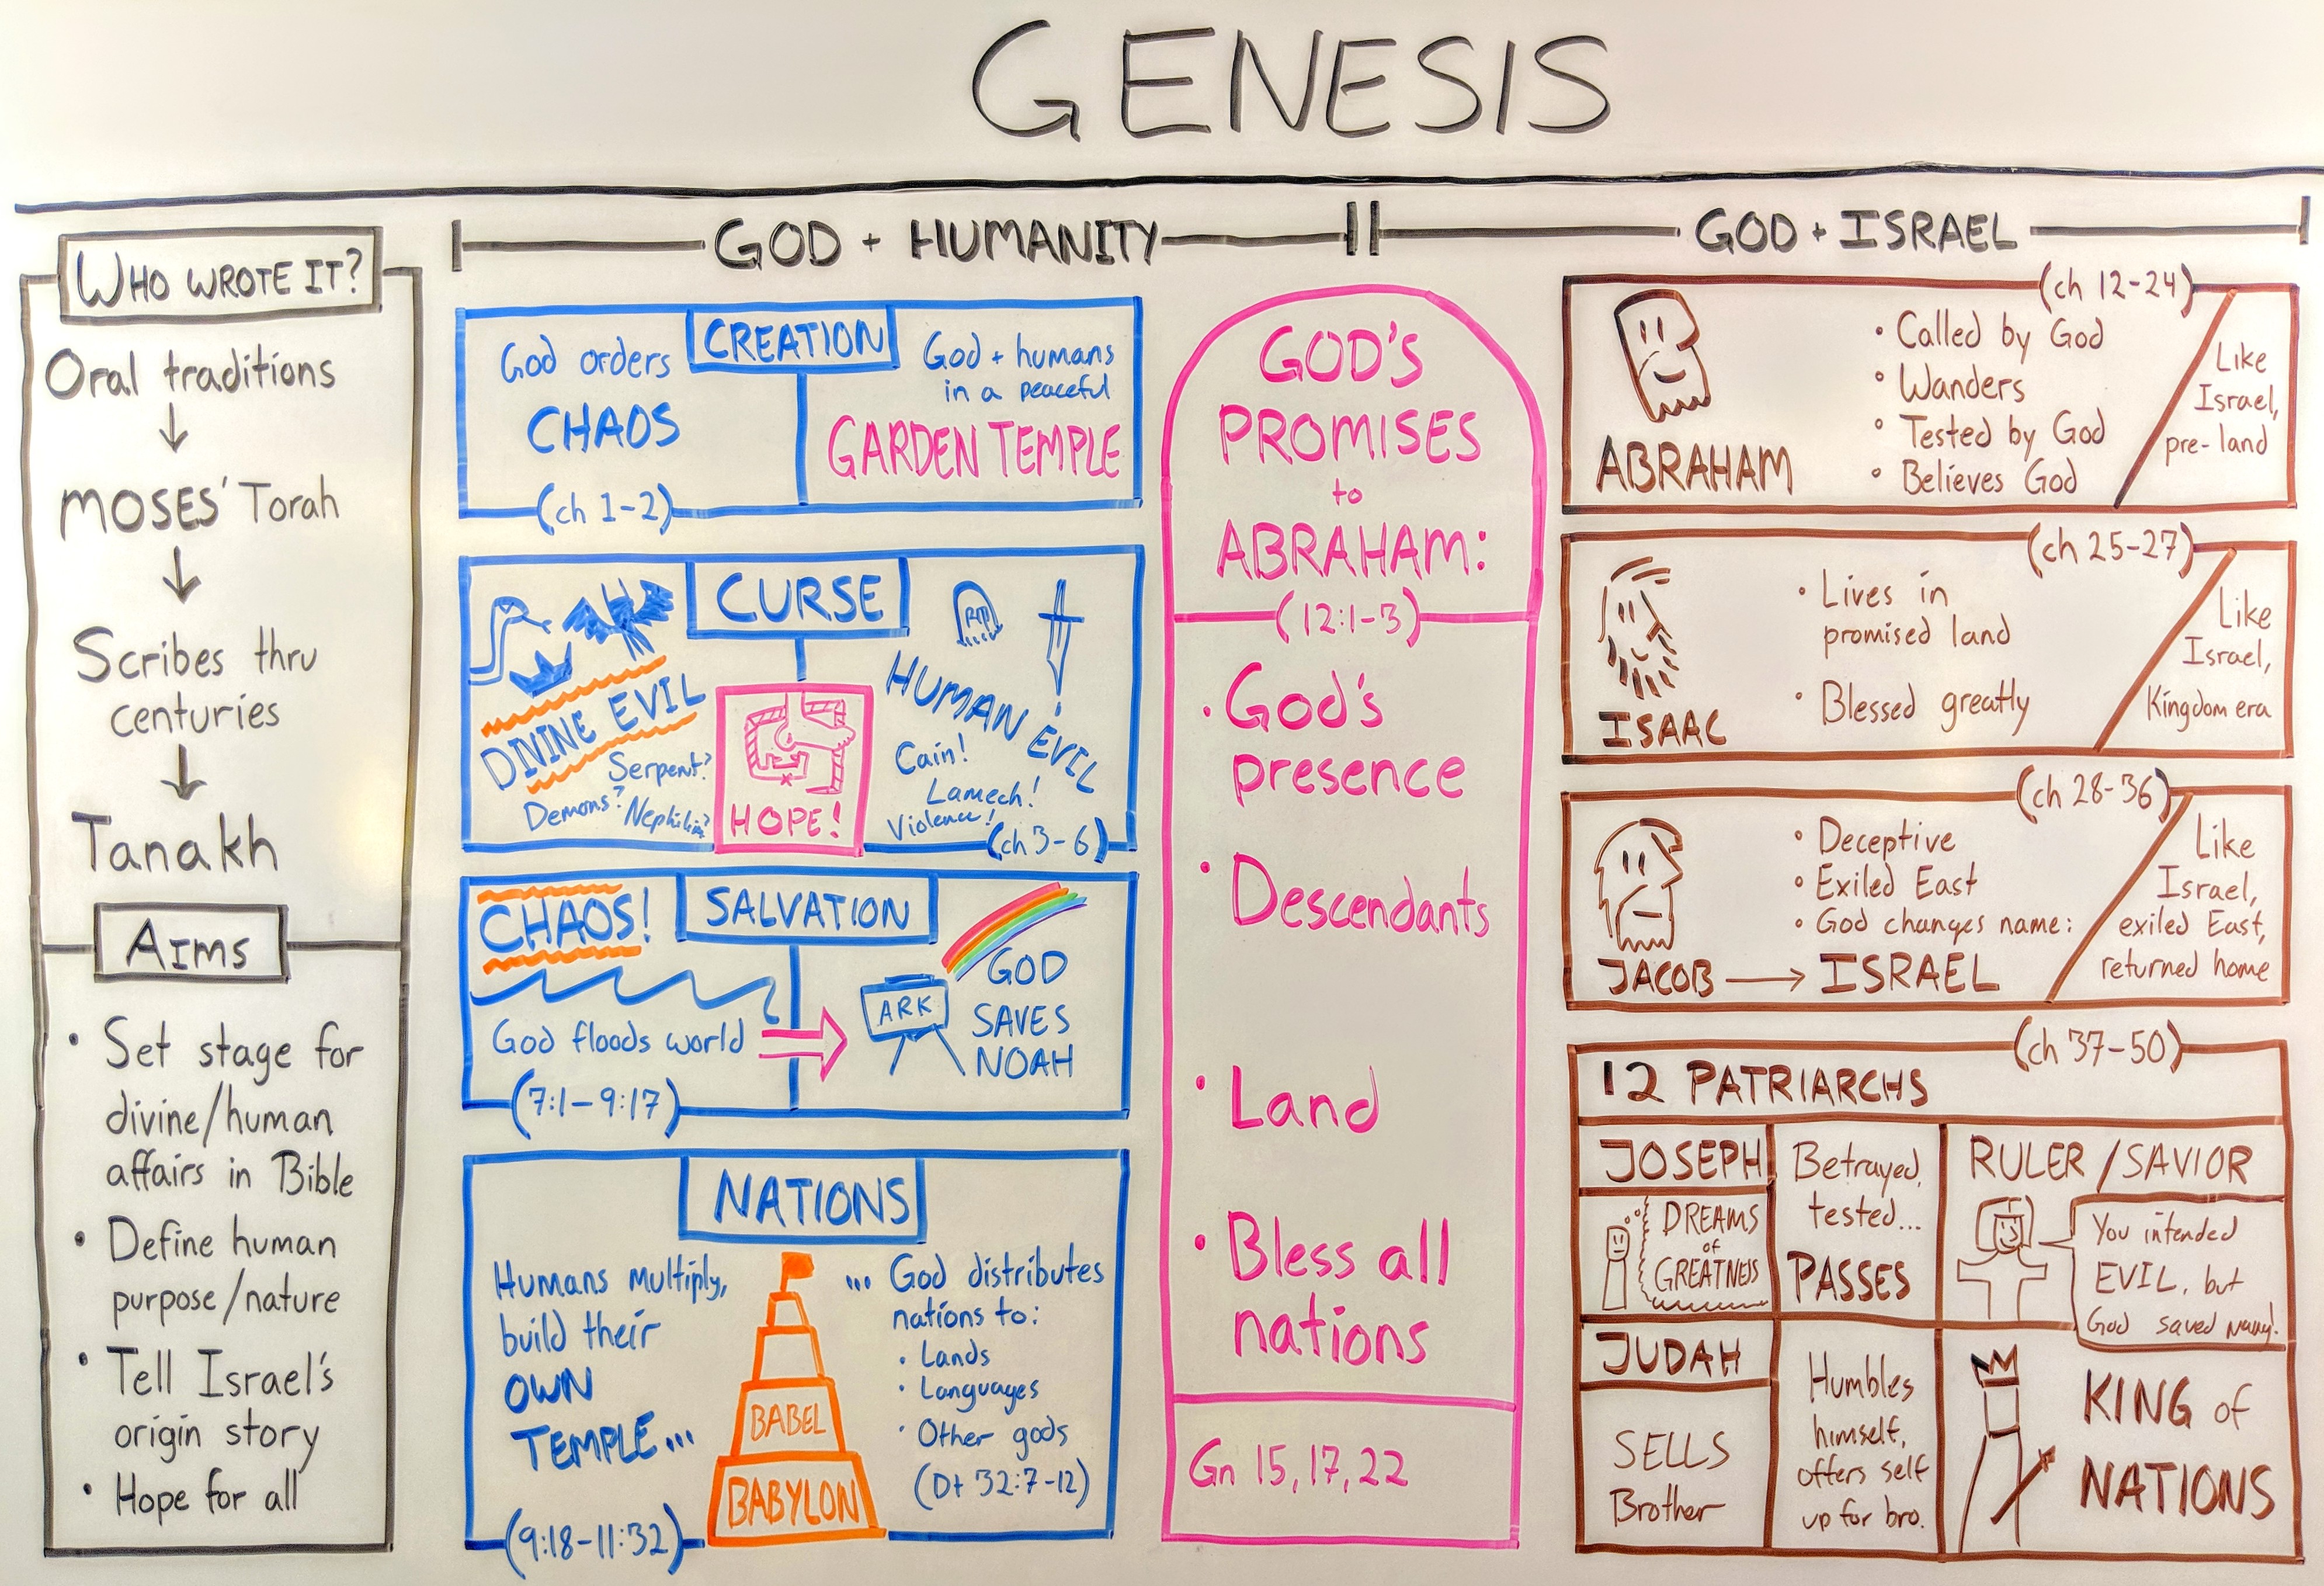 GENESIS
WHO WROTE IT?
Oral traditions
MOSES' Torah
Scribes thru
centuries
Tanakh
AIMS
• Set stage for
divine/human
affairs in Bible
• Define human
purpose/nature
• Tell Israel's
origin story
• Hope for all
GOD + HUMANITY
CREATION
God orders
CHAOS
God + humans
in a peaceful
GARDEN TEMPLE
(ch 1-2)
CURSE
DIVINE EVIL
Serpent?
Demons? Nephilim?
HOPE!
RIP
HUMAN EVIL
Cain!
Lamech!
Violence!
(ch 3-6)
SALVATION
CHAOS!
God floods world
(7:1-9:17)
ARK
GOD
SAVES
NOAH
NATIONS
Humans multiply,
build their
OWN
TEMPLE...
BABEL
BABYLON
... God distributes
nations to:
• Lands
• Languages
• Other gods
(Dt 32:7-12)
(9:18-11:32)
GOD'S
PROMISES
to
ABRAHAM:
(12:1-3)
• God's
presence
• Descendants
• Land
• Bless all
nations
Gn 15, 17, 22
GOD + ISRAEL
(ch 12-24)
ABRAHAM
• Called by God
• Wanders
• Tested by God
• Believes God
Like
Israel,
pre-land
(ch 25-27)
ISAAC
• Lives in
promised land
• Blessed greatly
Like
Israel,
Kingdom era
(ch 28-36)
• Deceptive
• Exiled East
• God changes name:
JACOB → ISRAEL
Like
Israel,
exiled East,
returned home
(ch 37-50)
12 PATRIARCHS
JOSEPH
DREAMS
of
GREATNESS
Betrayed,
tested...
PASSES
RULER/SAVIOR
You intended
EVIL, but
God saved many!
JUDAH
SELLS
Brother
Humbles
himself,
offers self
up for bro.
KING of
NATIONS